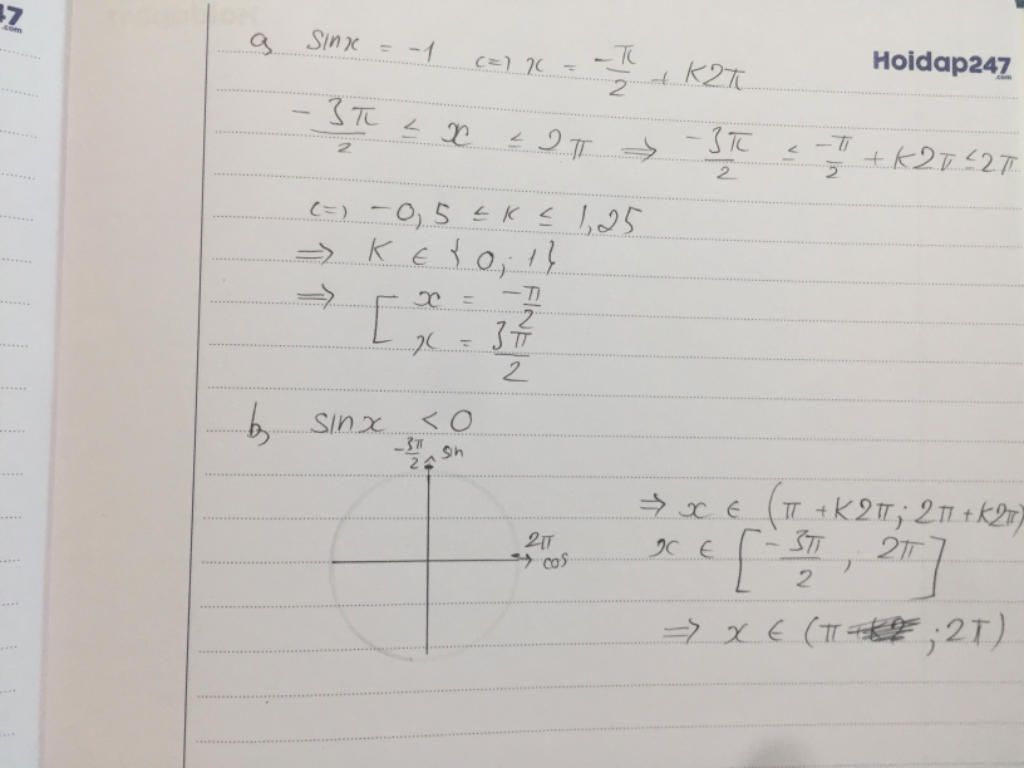 47
.com
Hoidap247
.com
a, sinx = -1 <=> x = -π/2 + K2π
-3π/2 ≤ x ≤ 2π => -3π/2 ≤ -π/2 + K2π ≤ 2π
<=> -0,5 ≤ K ≤ 1,25
=> K ∈ {0; 1}
=> [ x = -π/2
x = 3π/2
b, sinx < 0
-3π/2 sin
2π
cos
=> x ∈ (π + K2π; 2π + K2π)
x ∈ [-3π/2, 2π]
=> x ∈ (π ; 2π)